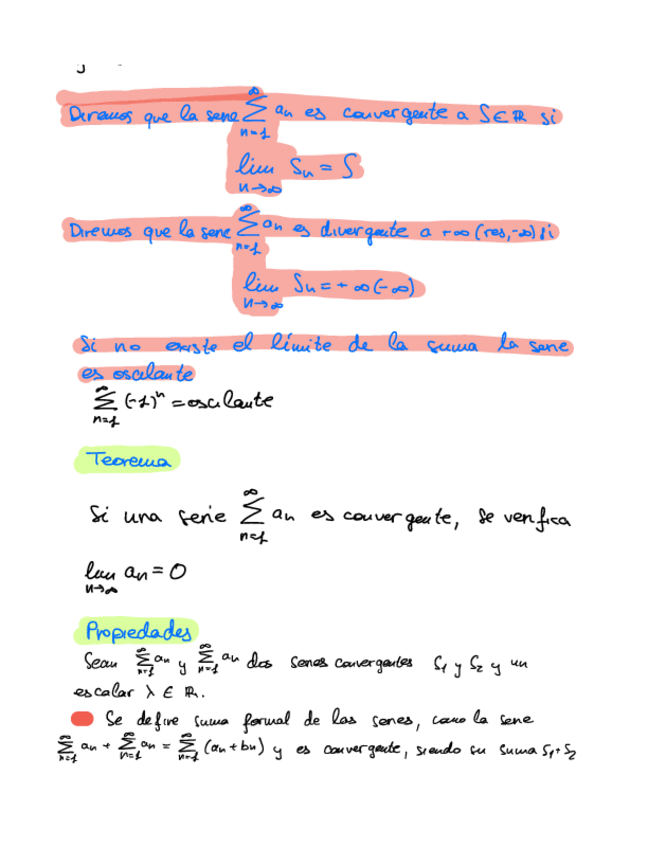 Diremos que la serie ∑_{n=1}^{∞} an es convergente a S∈ℝ si
lim_{n→∞} Sn = S
Diremos que la serie ∑_{n=1}^{∞} an es divergente a +∞ (res, -∞) si
lim_{n→∞} Sn = +∞ (-∞)
Si no existe el límite de la suma la serie
es oscilante
∑_{n=1}^{∞} (-1)^n = oscilante
Teorema
Si una serie ∑_{n=1}^{∞} an es convergente, se verifica
lim_{n→∞} an = 0
Propiedades
Sean ∑_{n=1}^{∞} an y ∑_{n=1}^{∞} an dos series convergentes S1 y S2 y un
escalar λ ∈ ℝ.
Se define suma formal de las series, como la serie
∑_{n=1}^{∞} an + ∑_{n=1}^{∞} an = ∑_{n=1}^{∞} (an + bn) y es convergente, siendo su suma S1+S2